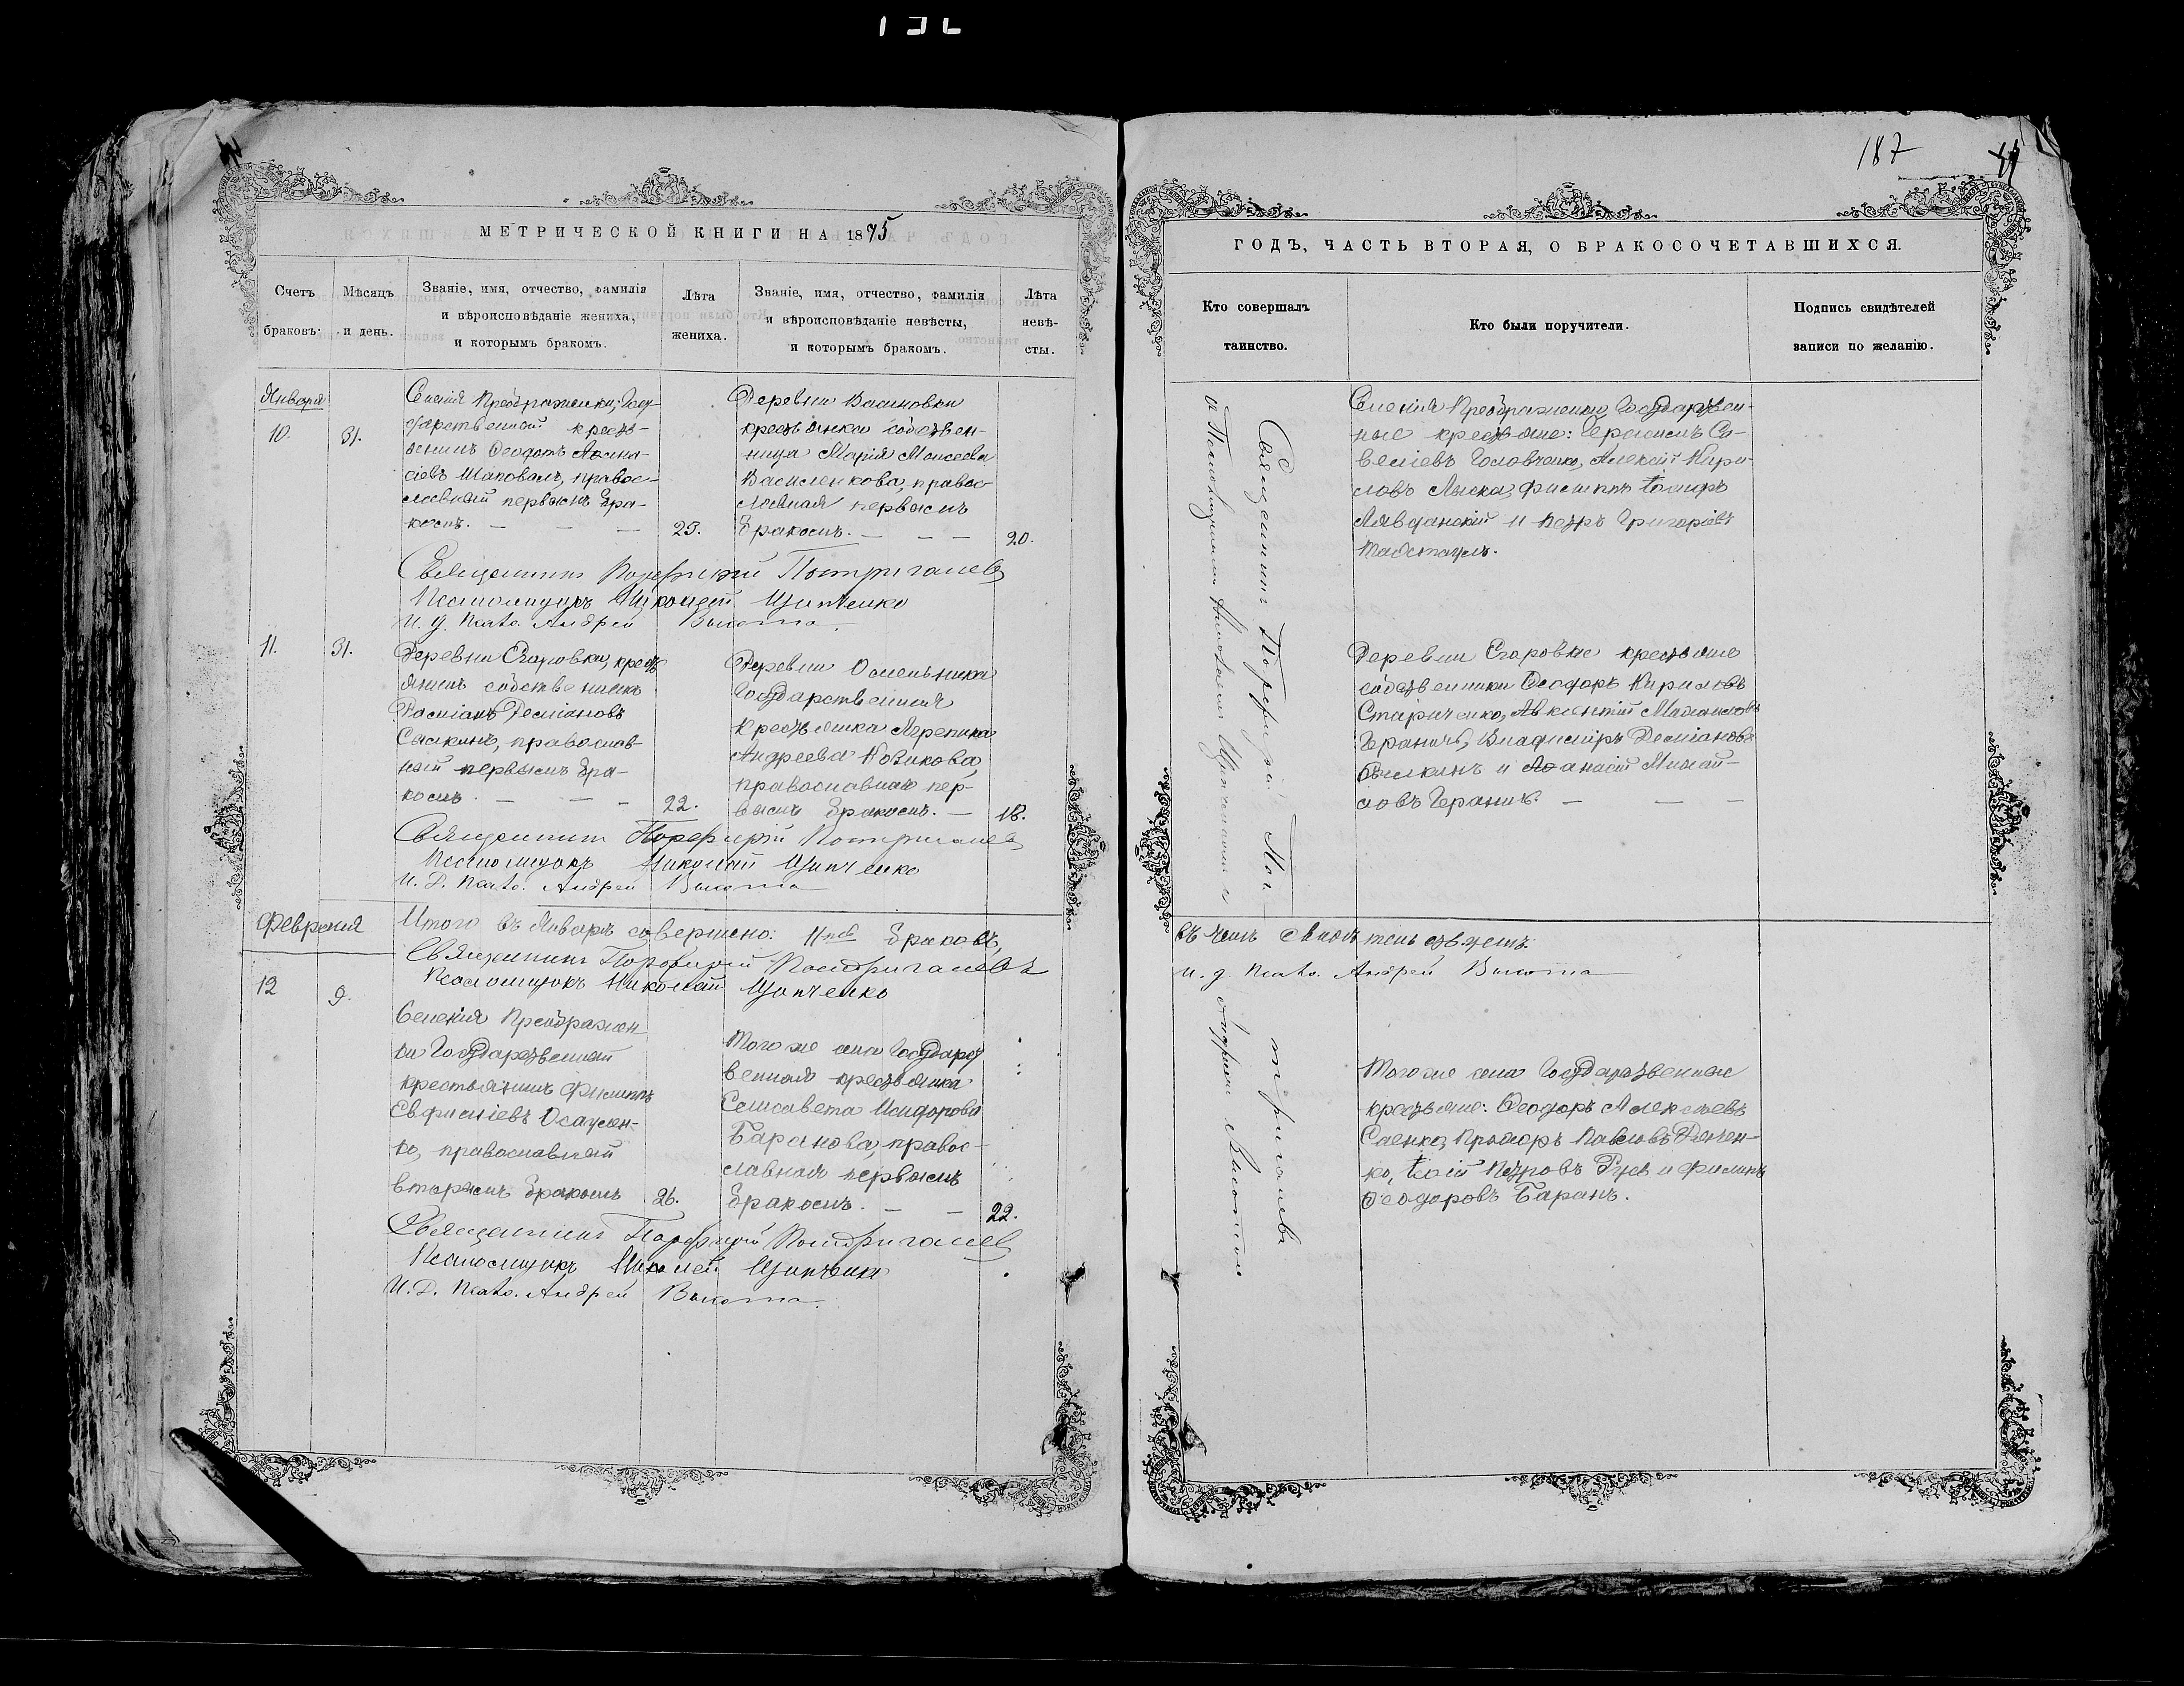 187
МЕТРИЧЕСКОЙ КНИГИ НА 1875
Счетъ браковъ.
Мѣсяцъ и день.
Званіе, имя, отчество, фамилія
и вѣроисповѣданіе жениха,
и которымъ бракомъ.
Лѣта жениха.
Званіе, имя, отчество, фамилія
и вѣроисповѣданіе невѣсты,
и которымъ бракомъ.
Лѣта невѣ-
сты.
Января
10. 31.
Селенія Преображенки, Госу-
дарственный кресть-
янинъ Ѳеодотъ Аѳана-
сіевъ Шаповалъ, правос-
лавный первымъ бра-
комъ. — — —
25.
Деревни Васиновки
крестьянка собствен-
ница Марія Моисеева
Василенкова, правос-
лавная первымъ
бракомъ. — — —
20.
Священникъ Порфирій Постригалевъ
Псаломщикъ Николай Щитченко
И. д. Псало. Андрей Высота
11. 31.
Деревни Егоровки, кресть
янинъ собственникъ
Даміанъ Деміановъ
православ-
ный первымъ бра-
комъ. — — —
22.
Деревни
Государственная
крестьянка Агрепина
Андреева Новикова,
православная пер-
вымъ бракомъ. —
18.
Священникъ Порфирій Постригалевъ
Псаломщикъ Николай Щитченко
И. д. Псало. Андрей Высота
Итого въ Январѣ совершено: 11-ть браковъ,
Священникъ Порфирій Постригалевъ
Псаломщикъ Николай Щитченко
Февраля
12 9.
Селенія Преображен
ки Государственный
крестьянинъ Филиппъ
Евфиміевъ
ко, православный
вторымъ бракомъ
26.
Того же села Государст
венная крестьянка
Елисавета Исидорова
Баранова, правос-
славная первымъ
бракомъ. — —
22.
Священникъ Порфирій Постригалевъ
Псаломщикъ Николай Щитченко
И. д. Псало. Андрей Высота
ГОДЪ, ЧАСТЬ ВТОРАЯ, О БРАКОСОЧЕТАВШИХСЯ.
Кто совершалъ
таинство.
Кто были поручители.
Подпись свидѣтелей
записи по желанію.
Священникъ Порфирій Пос-
тригалевъ
съ Псаломщикомъ Николаемъ Щитченкомъ и
Андреемъ Высотою
Селенія Преображенки Государствен-
ные крестьяне: Герасимъ Са-
веліевъ Головченко, Алексій Кири-
ловъ Лыска, Филиппъ
и Петръ Григоріевъ
Деревни Егоровки крестьяне
собственники Ѳеодоръ Кириловъ
Стариченко, Авксентій Михаиловъ
Геранич, Владиміръ Деміановъ
и Аѳанасій Михай-
ловъ — — —
въ чемъ свидѣтельствуемъ
и. д. Псало. Андрей Высота
Того же села Государственные
крестьяне: Ѳеодоръ Алексѣевъ
Саенко, Прохоръ Павловъ
ко, Петровъ и Филиппъ
Ѳеодоровъ Баранъ.